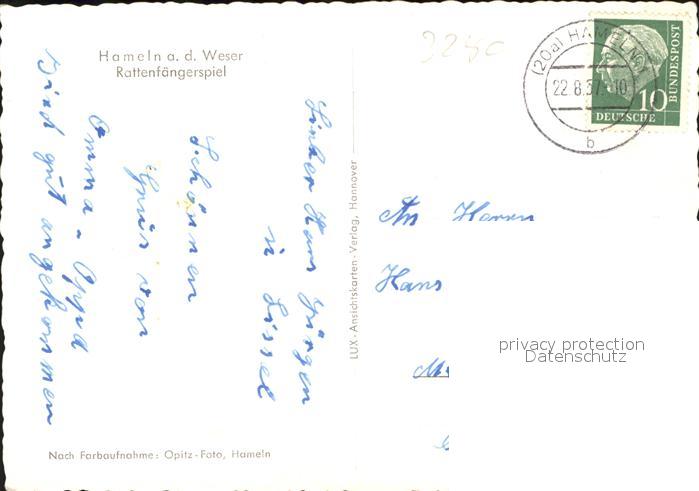 Hameln a. d. Weser
Rattenfängerspiel
Lieber Hans Jürgen
u Lissel
Schönen
Gruß von
Omma - Oppa
Sind gut angekommen
Nach Farbaufnahme: Opitz-Foto, Hameln
LUX-Ansichtskarten-Verlag, Hannover
(20a) HAMELN
22.8.57.-10
b
10
DEUTSCHE
BUNDESPOST
An Herrn
Hans
privacy protection
Datenschutz